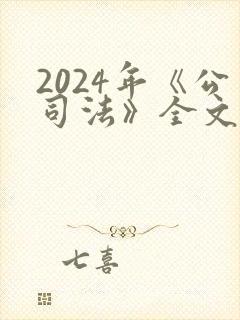 2024年《公
司法》全文
七喜